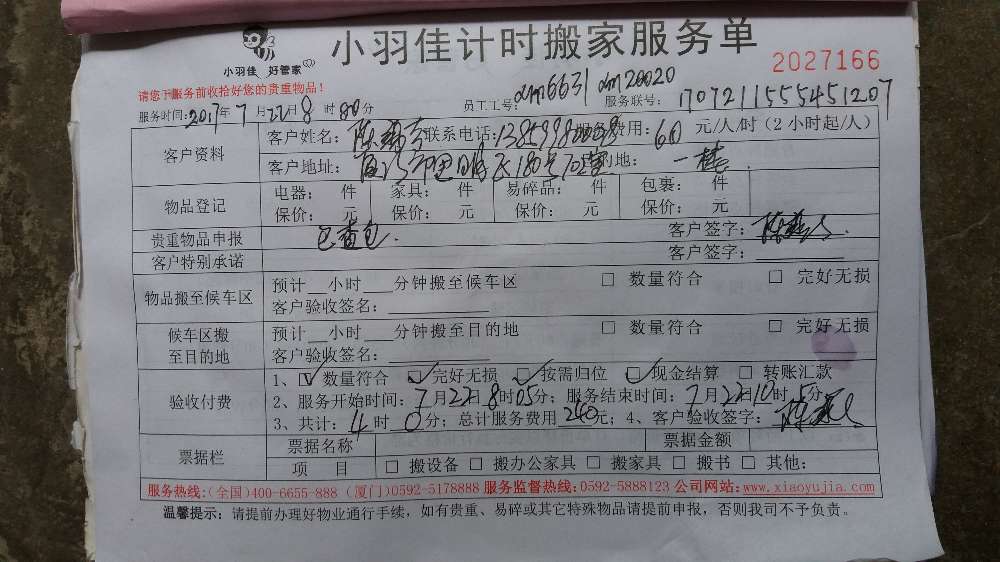 小羽佳 好管家
小羽佳计时搬家服务单
2027166
请您于服务前收拾好您的贵重物品!
服务时间:2017年7月22日8时00分 员工工号: 服务联号:1707211555451207
客户资料 客户姓名: 联系电话: 服务费用:60元/人/时(2小时起/人)
客户地址:
物品登记 电器: 件 家具: 件 易碎品: 件 包裹: 件
保价: 元 保价: 元 保价: 元 保价: 元
贵重物品申报 客户签字:
客户特别承诺 客户签字:
物品搬至候车区 预计__小时___分钟搬至候车区 □ 数量符合 □ 完好无损
客户验收签名:
候车区搬至目的地 预计__小时___分钟搬至目的地 □ 数量符合 □ 完好无损
客户验收签名:
验收付费 1、☑ 数量符合 ☑ 完好无损 ☑ 按需归位 ☑ 现金结算 □ 转账汇款
2、服务开始时间:7月22日8时05分;服务结束时间:7月22日 时5分;
3、共计:4时0分;总计服务费用240元;4、客户验收签字:
票据栏 票据名称 票据金额
项 目 □ 搬设备 □ 搬办公家具 □ 搬家具 □ 搬书 □ 其他:
服务热线:(全国)400-6655-888 (厦门)0592-5178888 服务监督热线:0592-5888123 公司网站:www.xiaoyujia.com
温馨提示:请提前办理好物业通行手续,如有贵重、易碎或其它特殊物品请提前申报,否则我司不予负责。